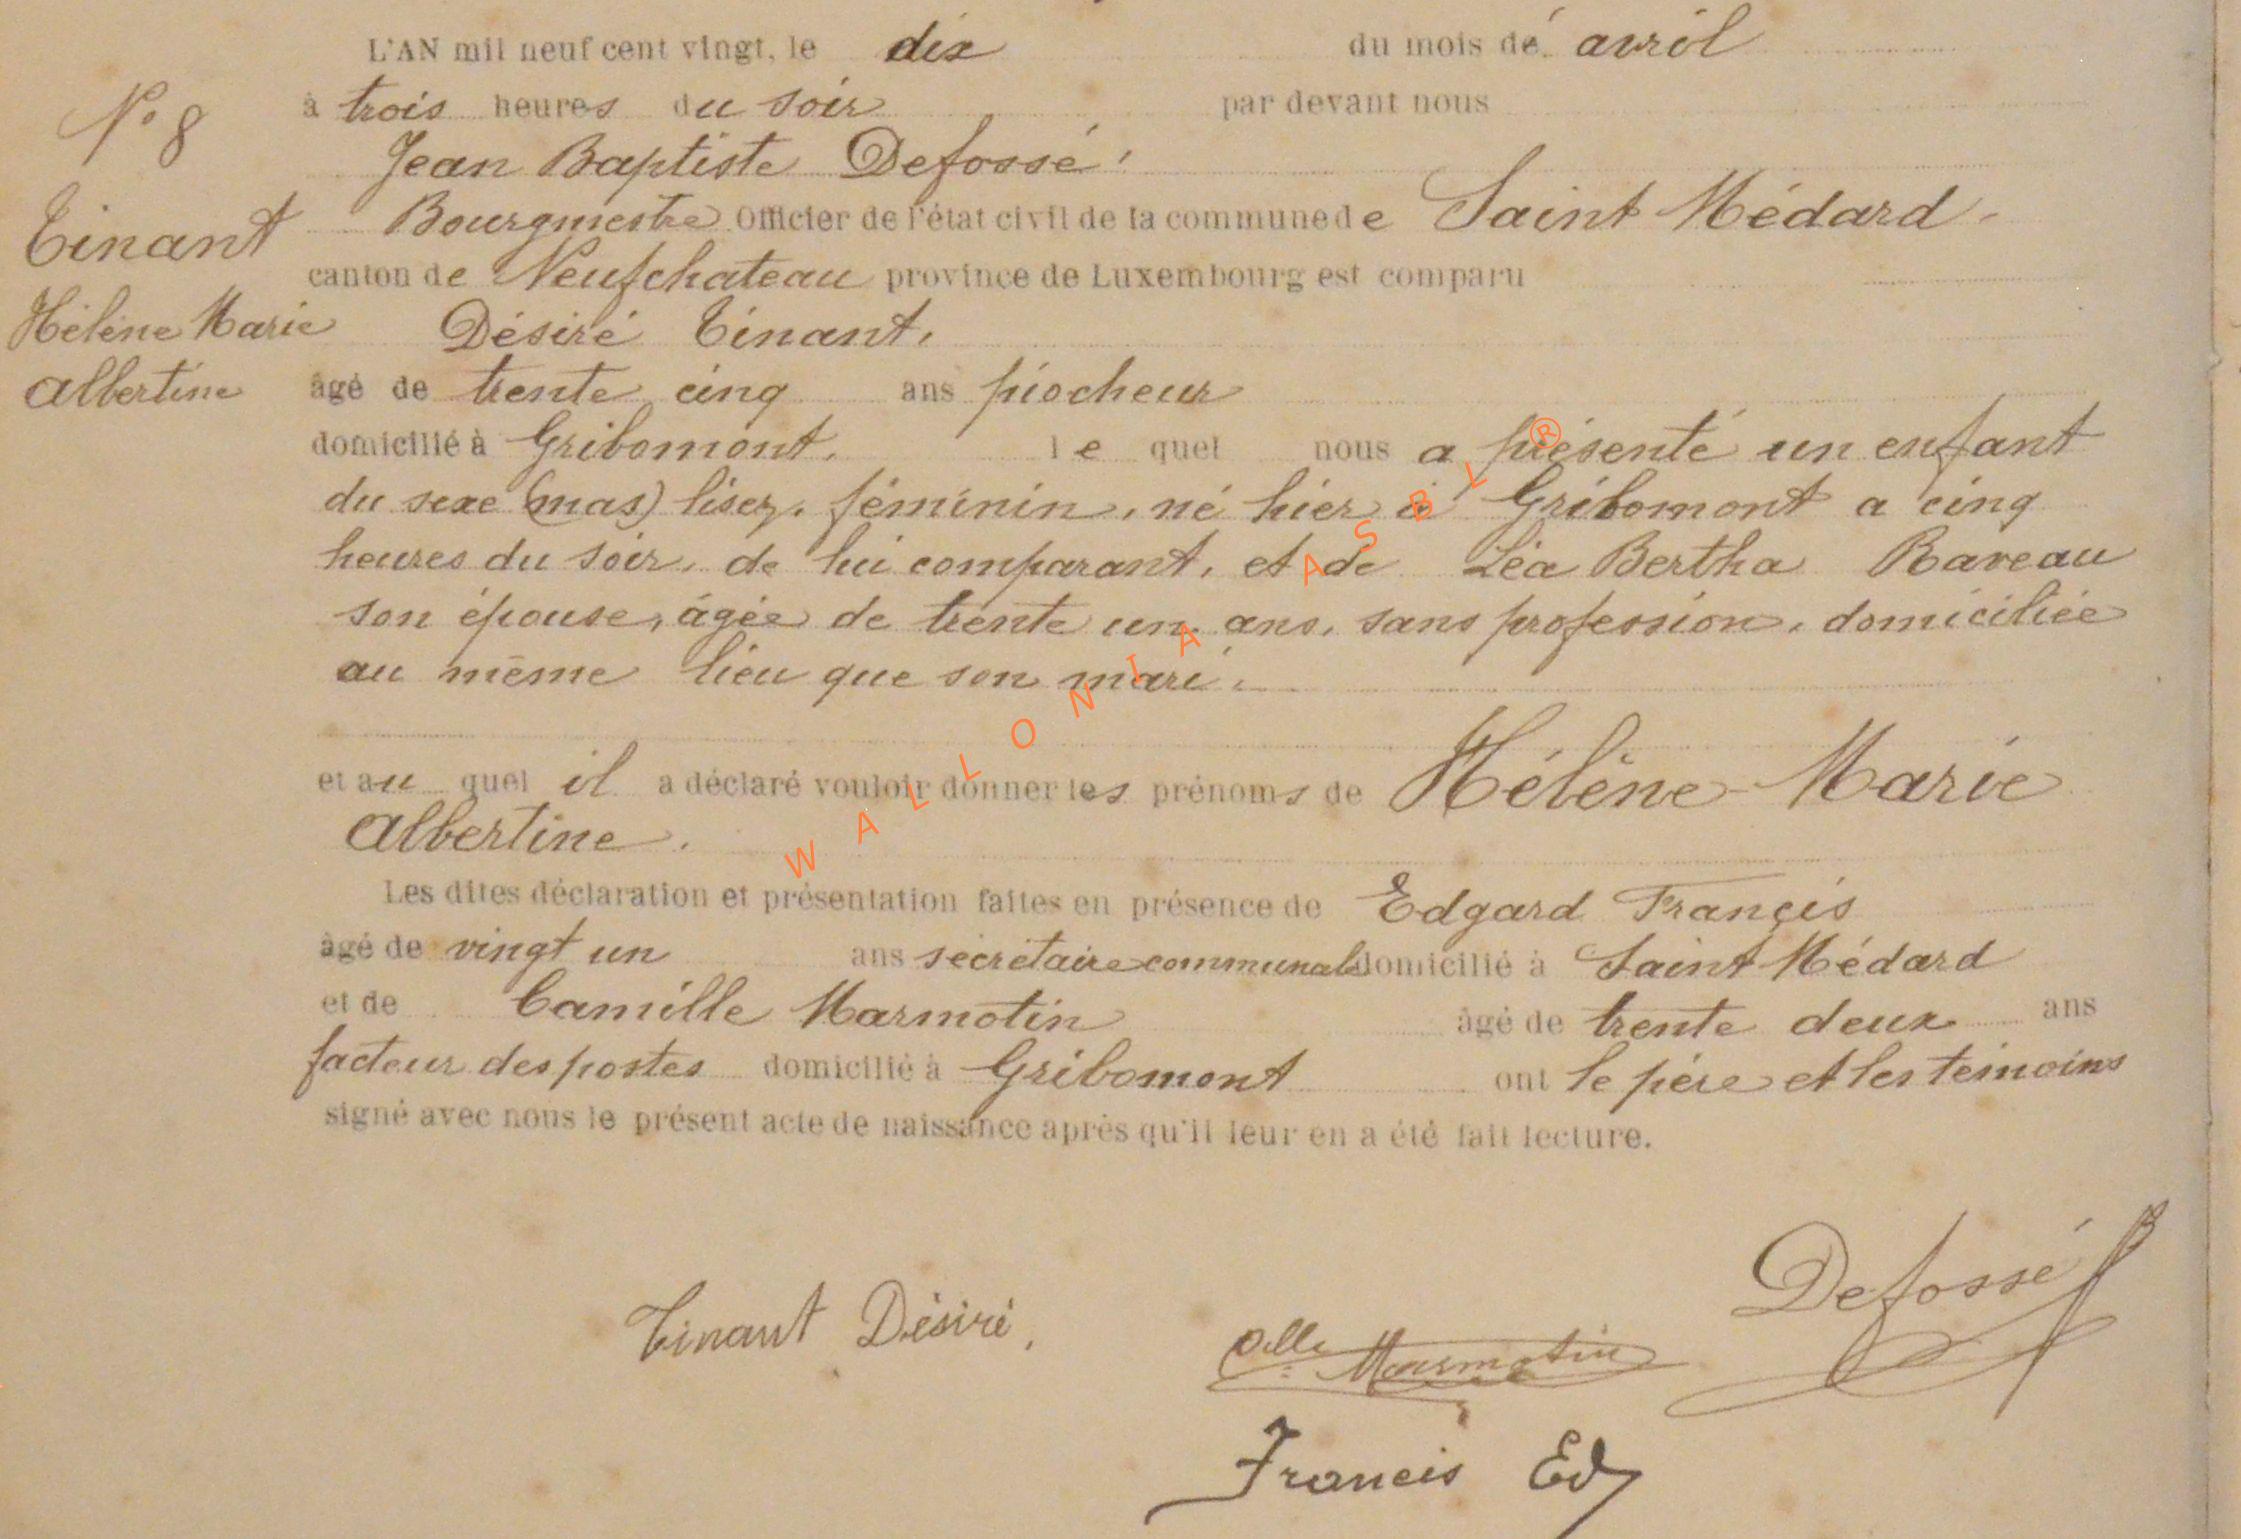 L'AN mil neuf cent vingt, le dix du mois de avril
N° 8
à trois heures du soir par devant nous
Jean Baptiste Defossé,
Tinant
Bourgmestre Officier de l'état civil de la commune de Saint Médard.
canton de Neufchateau province de Luxembourg est comparu
Hélène Marie
Désiré Tinant,
Albertine
âgé de trente cinq ans piocheur
domicilié à Gribomont, le quel nous a présenté un enfant
du sexe (mas) lisez, féminin, né hier à Gribomont a cinq
heures du soir, de lui comparant, et de Léa Bertha Baveau
son épouse, âgée de trente un ans, sans profession, domiciliée
au même lieu que son mari.
et au quel il a déclaré vouloir donner les prénoms de Hélène Marie
Albertine.
Les dites déclaration et présentation faites en présence de Edgard Françis
âgé de vingt un ans secrétaire communal domicilié à Saint Médard
et de Camille Marmotin âgé de trente deux ans
facteur des postes domicilié à Gribomont ont le père et les témoins
signé avec nous le présent acte de naissance après qu'il leur en a été fait lecture.
Defossé
Tinant Désiré,
Clle Marmotin
Francis Ed
WALLONIA ASBL ®